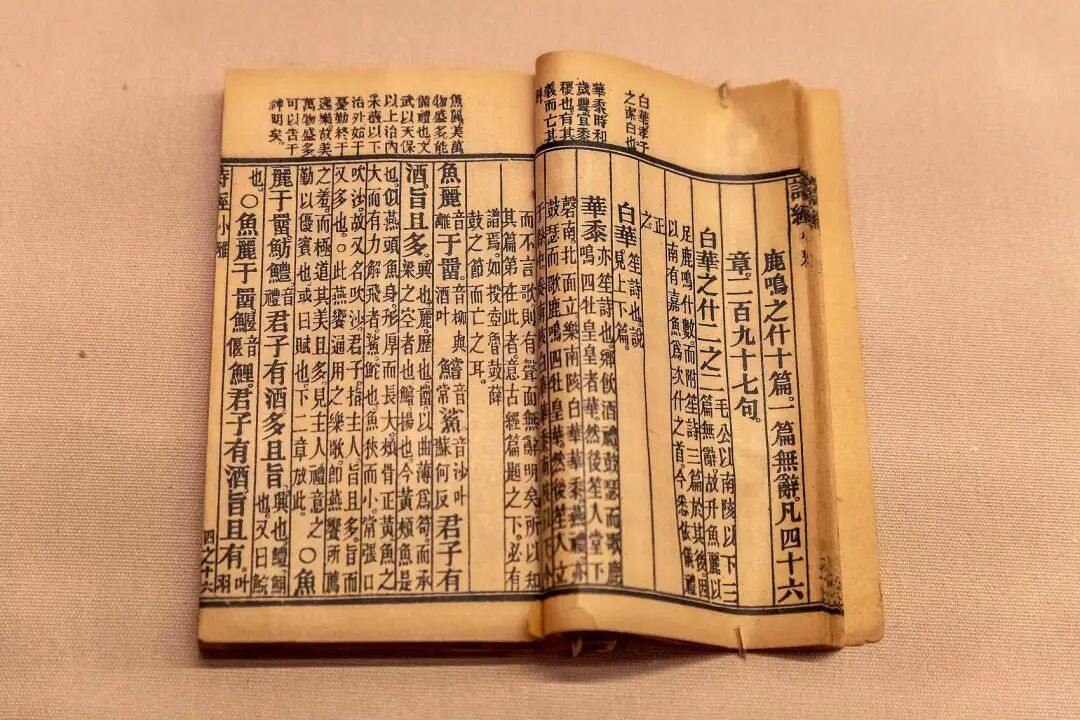 白華孝子
之潔白也
華黍時和
歲豐宜黍
稷也有其
義而亡其
詩經
鹿鳴之什十篇。一篇無辭。凡四十六
章。二百九十七句。
白華之什二之二 毛公以南陔以下三
篇無辭。故升魚麗以
足鹿鳴什數。而附笙詩三篇於其後。因
以南有嘉魚爲次什之首。今悉依儀禮
正
之。
白華。笙詩也。說
見上下篇。
華黍。亦笙詩也。鄉飲酒禮。鼓瑟而歌鹿
鳴四牡皇皇者華。然後笙入堂下
磬南。北面立。樂南陔白華華黍。燕禮亦
鼓瑟而歌鹿鳴四牡皇華。然後笙入立
魚麗美萬
物盛多能
備禮也文
武以天保
以上治內
采薇以下
治外始于
憂勤終于
逸樂故美
萬物盛多
可以告于
神明矣。
而不言歌。則有聲而無辭明矣。所以知
其篇第在此者。意古經篇題之下。必有
譜焉。如投壺魯鼓薛
鼓之節而亡之耳。
魚麗音離于罶音柳與酒叶鱨音常鯊音沙叶蘇何反君子有
酒。旨且多。興也。麗。歷也。罶。以曲薄爲笱。而承
梁之空者也。鱨。揚也。今黃頰魚是
也。似燕頭魚身。形厚而長大。頰骨正黃。魚之
大而有力解飛者。鯊。鮀也。魚狹而小。常張口
吹沙。故又名吹沙。君子。指主人。旨且多。旨而
又多也。〇此燕饗通用之樂歌。卽燕饗所薦
之羞。而極道其美且多。見主人禮意之
勤以優賓也。或曰賦也。下二章放此。〇魚
麗于罶。魴鱧。音禮君子有酒。多且旨。興也。鱧。鮦
也。又曰鯇
也。〇魚麗于罶。鰋音偃鯉。君子有酒。旨且有。叶羽
詩經小雅
四之十六